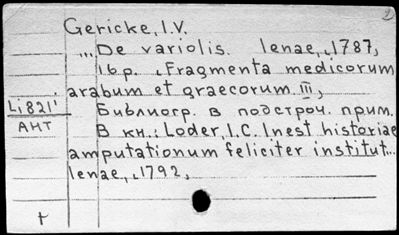 2
Gericke, I.V.
„De variolis. Ienae, ˪1787,
16p. ˪Fragmenta medicorum
arabum et graecorum III,
Li821' Библиогр. в подстроч. прим.
АНТ В кн.: Loder, I.C. Inest historiae
amputationum feliciter institut...
Ienae, ˪1792,
+